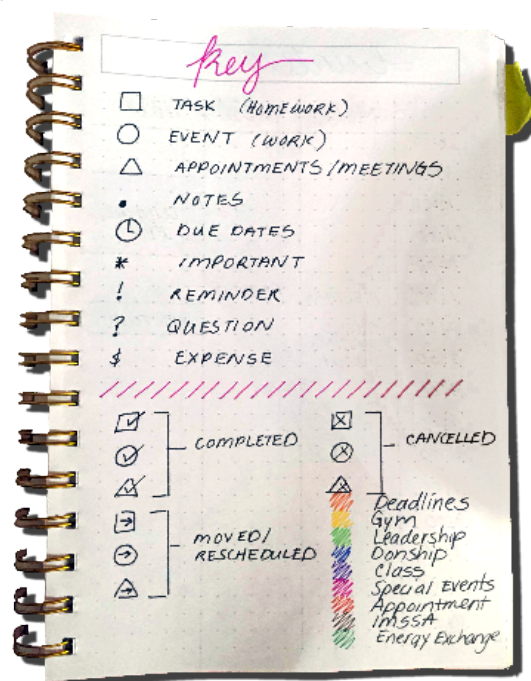 key
□ TASK (HOMEWORK)
○ EVENT (WORK)
△ APPOINTMENTS/MEETINGS
• NOTES
DUE DATES
* IMPORTANT
! REMINDER
? QUESTION
$ EXPENSE
COMPLETED
CANCELLED
MOVED/
RESCHEDULED
Deadlines
Gym
Leadership
Donship
Class
Special Events
Appointment
IMSSA
Energy Exchange